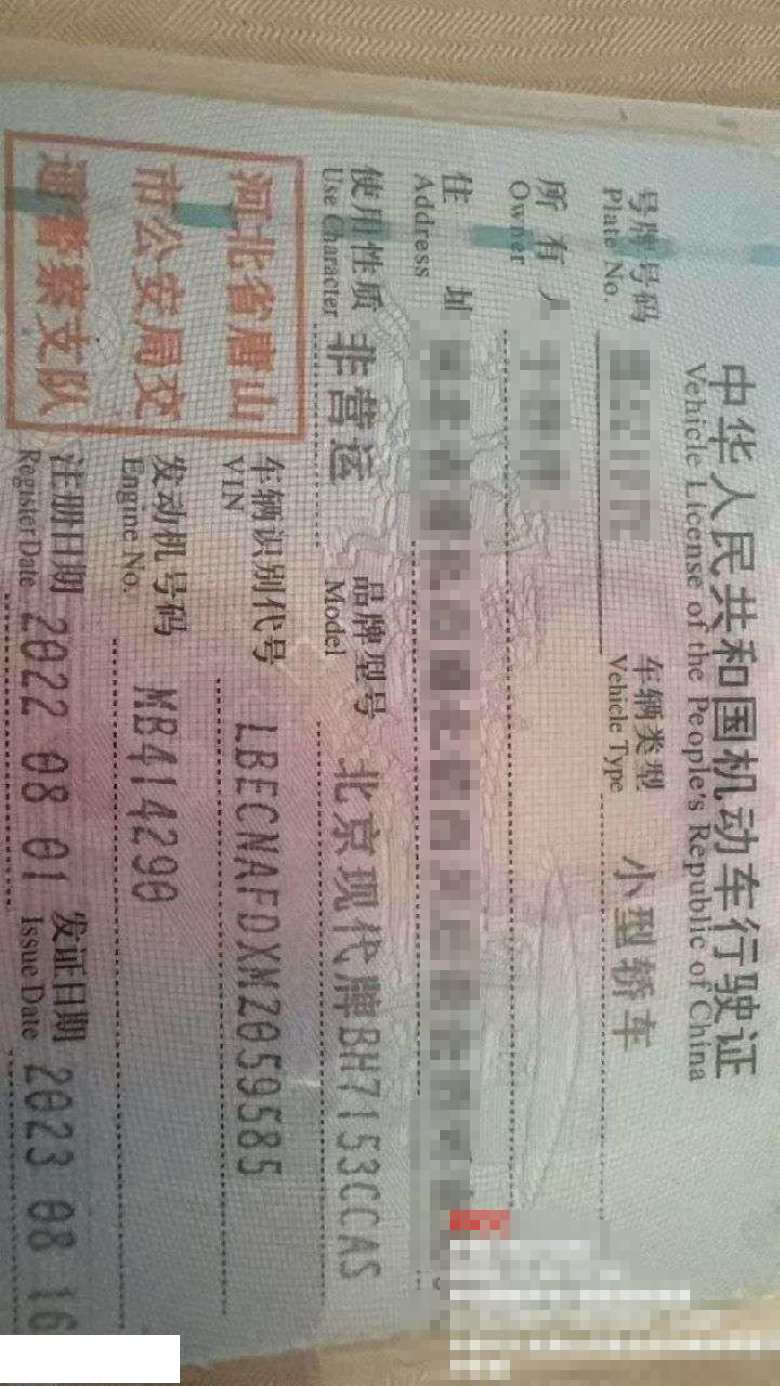 中华人民共和国机动车行驶证
Vehicle License of the People's Republic of China
号牌号码
Plate No.
车辆类型 小型轿车
Vehicle Type
所有人
Owner
住址
Address
使用性质 非营运
Use Character
品牌型号 北京现代牌BH7153CCAS
Model
河北省唐山
市公安局交
通警察支队
车辆识别代号 LBECNAFDXMZ059585
VIN
发动机号码 MB414290
Engine No.
注册日期 2022 08 01
Register Date
发证日期 2023 08 16
Issue Date